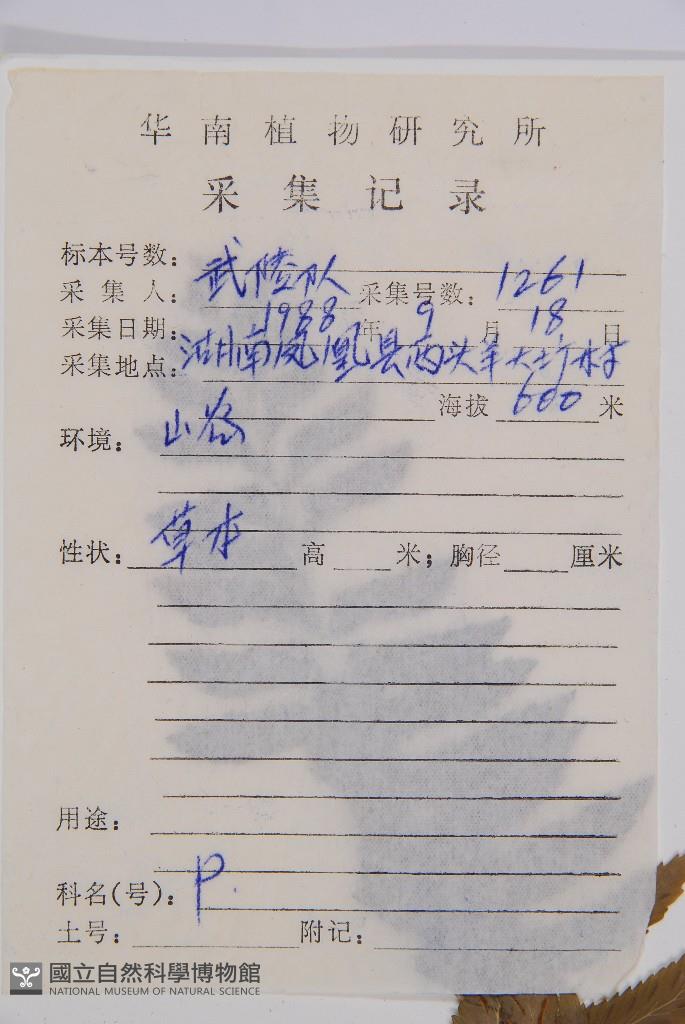 华南植物研究所
采集记录
标本号数：
采集人：武陵队 采集号数：1261
采集日期：1988年9月18日
采集地点：湖南凤凰县两头羊大坪村
海拔 600 米
环境：山谷
性状：草本 高 米；胸径 厘米
用途：
科名(号)：P.
土号： 附记：
國立自然科學博物館
NATIONAL MUSEUM OF NATURAL SCIENCE